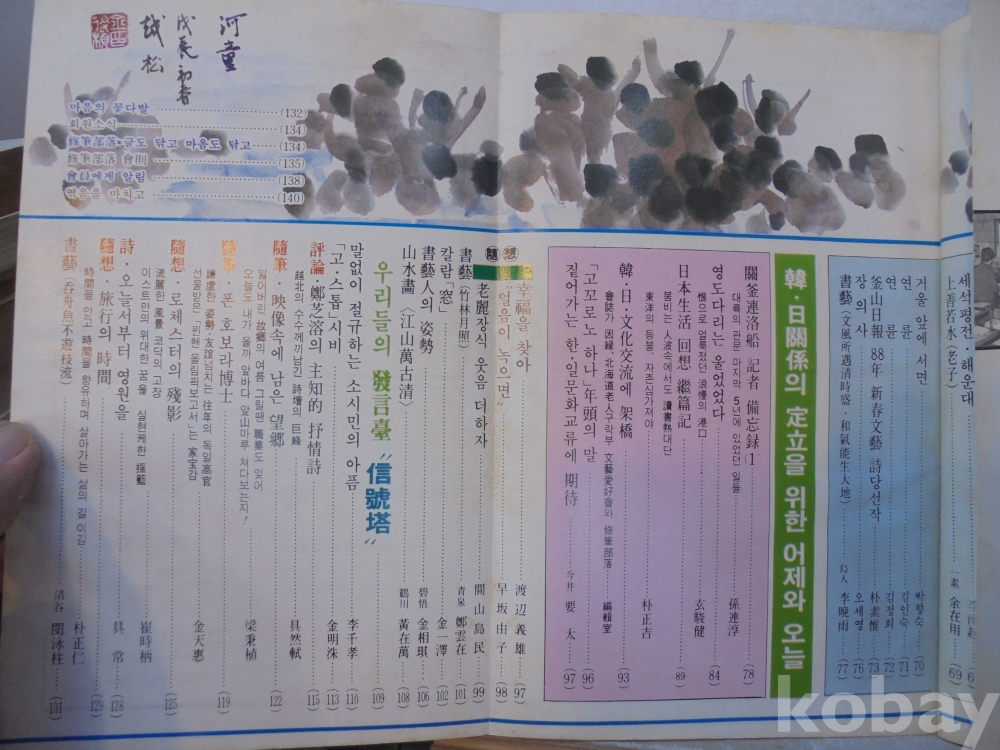 河童
戊辰初春
越松
마음의 꽃다발 (132)
회원소식 (134)
修筆部落·글도 닦고 마음도 닦고 (134)
修筆部落 會則 (135)
會員에게 알림 (138)
엮음을 마치고 (140)
세석평전·해운대
上善若水(老子) 一素 金在用 (69)
거울 앞에 서면 박향숙 (70)
연륜 김인숙 (71)
연륜 김정희 (72)
釜山日報 88年 新春文藝 詩당선작 朴素惟 (73)
장의사 오세영 (76)
書藝(文風所遇清時盛 和氣能生大地) 島人 李晩雨 (77)
韓·日關係의 定立을 위한 어제와 오늘
關釜連洛船 記者 備忘録(1) 孫連淳 (78)
대륙의 관문 마지막 5년에 있었던 일들
영도다리는 울었었다 玄駿健 (84)
恨으로 얼룩졌던 浪慢의 港口
日本生活 回想 繼篇記 朴正吉 (89)
붐비는 人波속에서도 讀書熱대단
東洋의 등불, 자존심가져야
韓·日·文化交流에 架橋 編輯室 (93)
會誌가 因縁、北海道老人구락부 文藝愛好會와 修筆部落
「고꼬로노 하나」年頭의 말 (96)
짙어가는 한·일문화교류에 期待 今井 要太 (97)
隨想 幸福을 찾아 渡辺義雄 (97)
"얼음이 녹으면" 早坂由子 (98)
老麗장식 웃음 더하자 間山島民 (99)
書藝(竹林月照) 青泉 鄭雲在 (101)
칼람「窓」 金一澤 (102)
書藝人의 姿勢 碧悟 金相琪 (106)
山水畵 〈江山萬古清〉 鶴川 黃在萬 (108)
우리들의 發言臺 "信號塔" (109)
말없이 절규하는 소시민의 아픔 李千孝 (110)
「고·스톱」시비 金明洙 (113)
評論·鄭芝溶의 主知的 抒情詩 具然軾 (115)
越北의 수수께끼남긴 詩壇의 巨峰
隨筆·映像속에 남은 望郷 梁秉植 (122)
잃어버린 故郷의 여름 그릴때 職業도 잊어
오늘도 내가 올까 앞바다 앞山마루 쳐다보는지!
隨筆·폰·호보라博士 金天惠 (119)
謙虛한 姿勢·友誼넘치는 往年의 독일高官
선물받은「뮌헨 올림픽보고서」는 家宝감
隨想·로체스터의 殘影 崔時柄 (125)
流麗한 風景 코닥의 고장
이스트만의 위대한 꿈을 실현케한 揺籃
詩·오늘서부터 영원을 具常 (128)
隨想·旅行의 時間 朴正仁 (129)
時間을 안고 時間을 향유하며 살아가는 삶의 길이김
書藝(呑舟魚不遊枝流) 清谷 閔泳柱 (131)
kobay